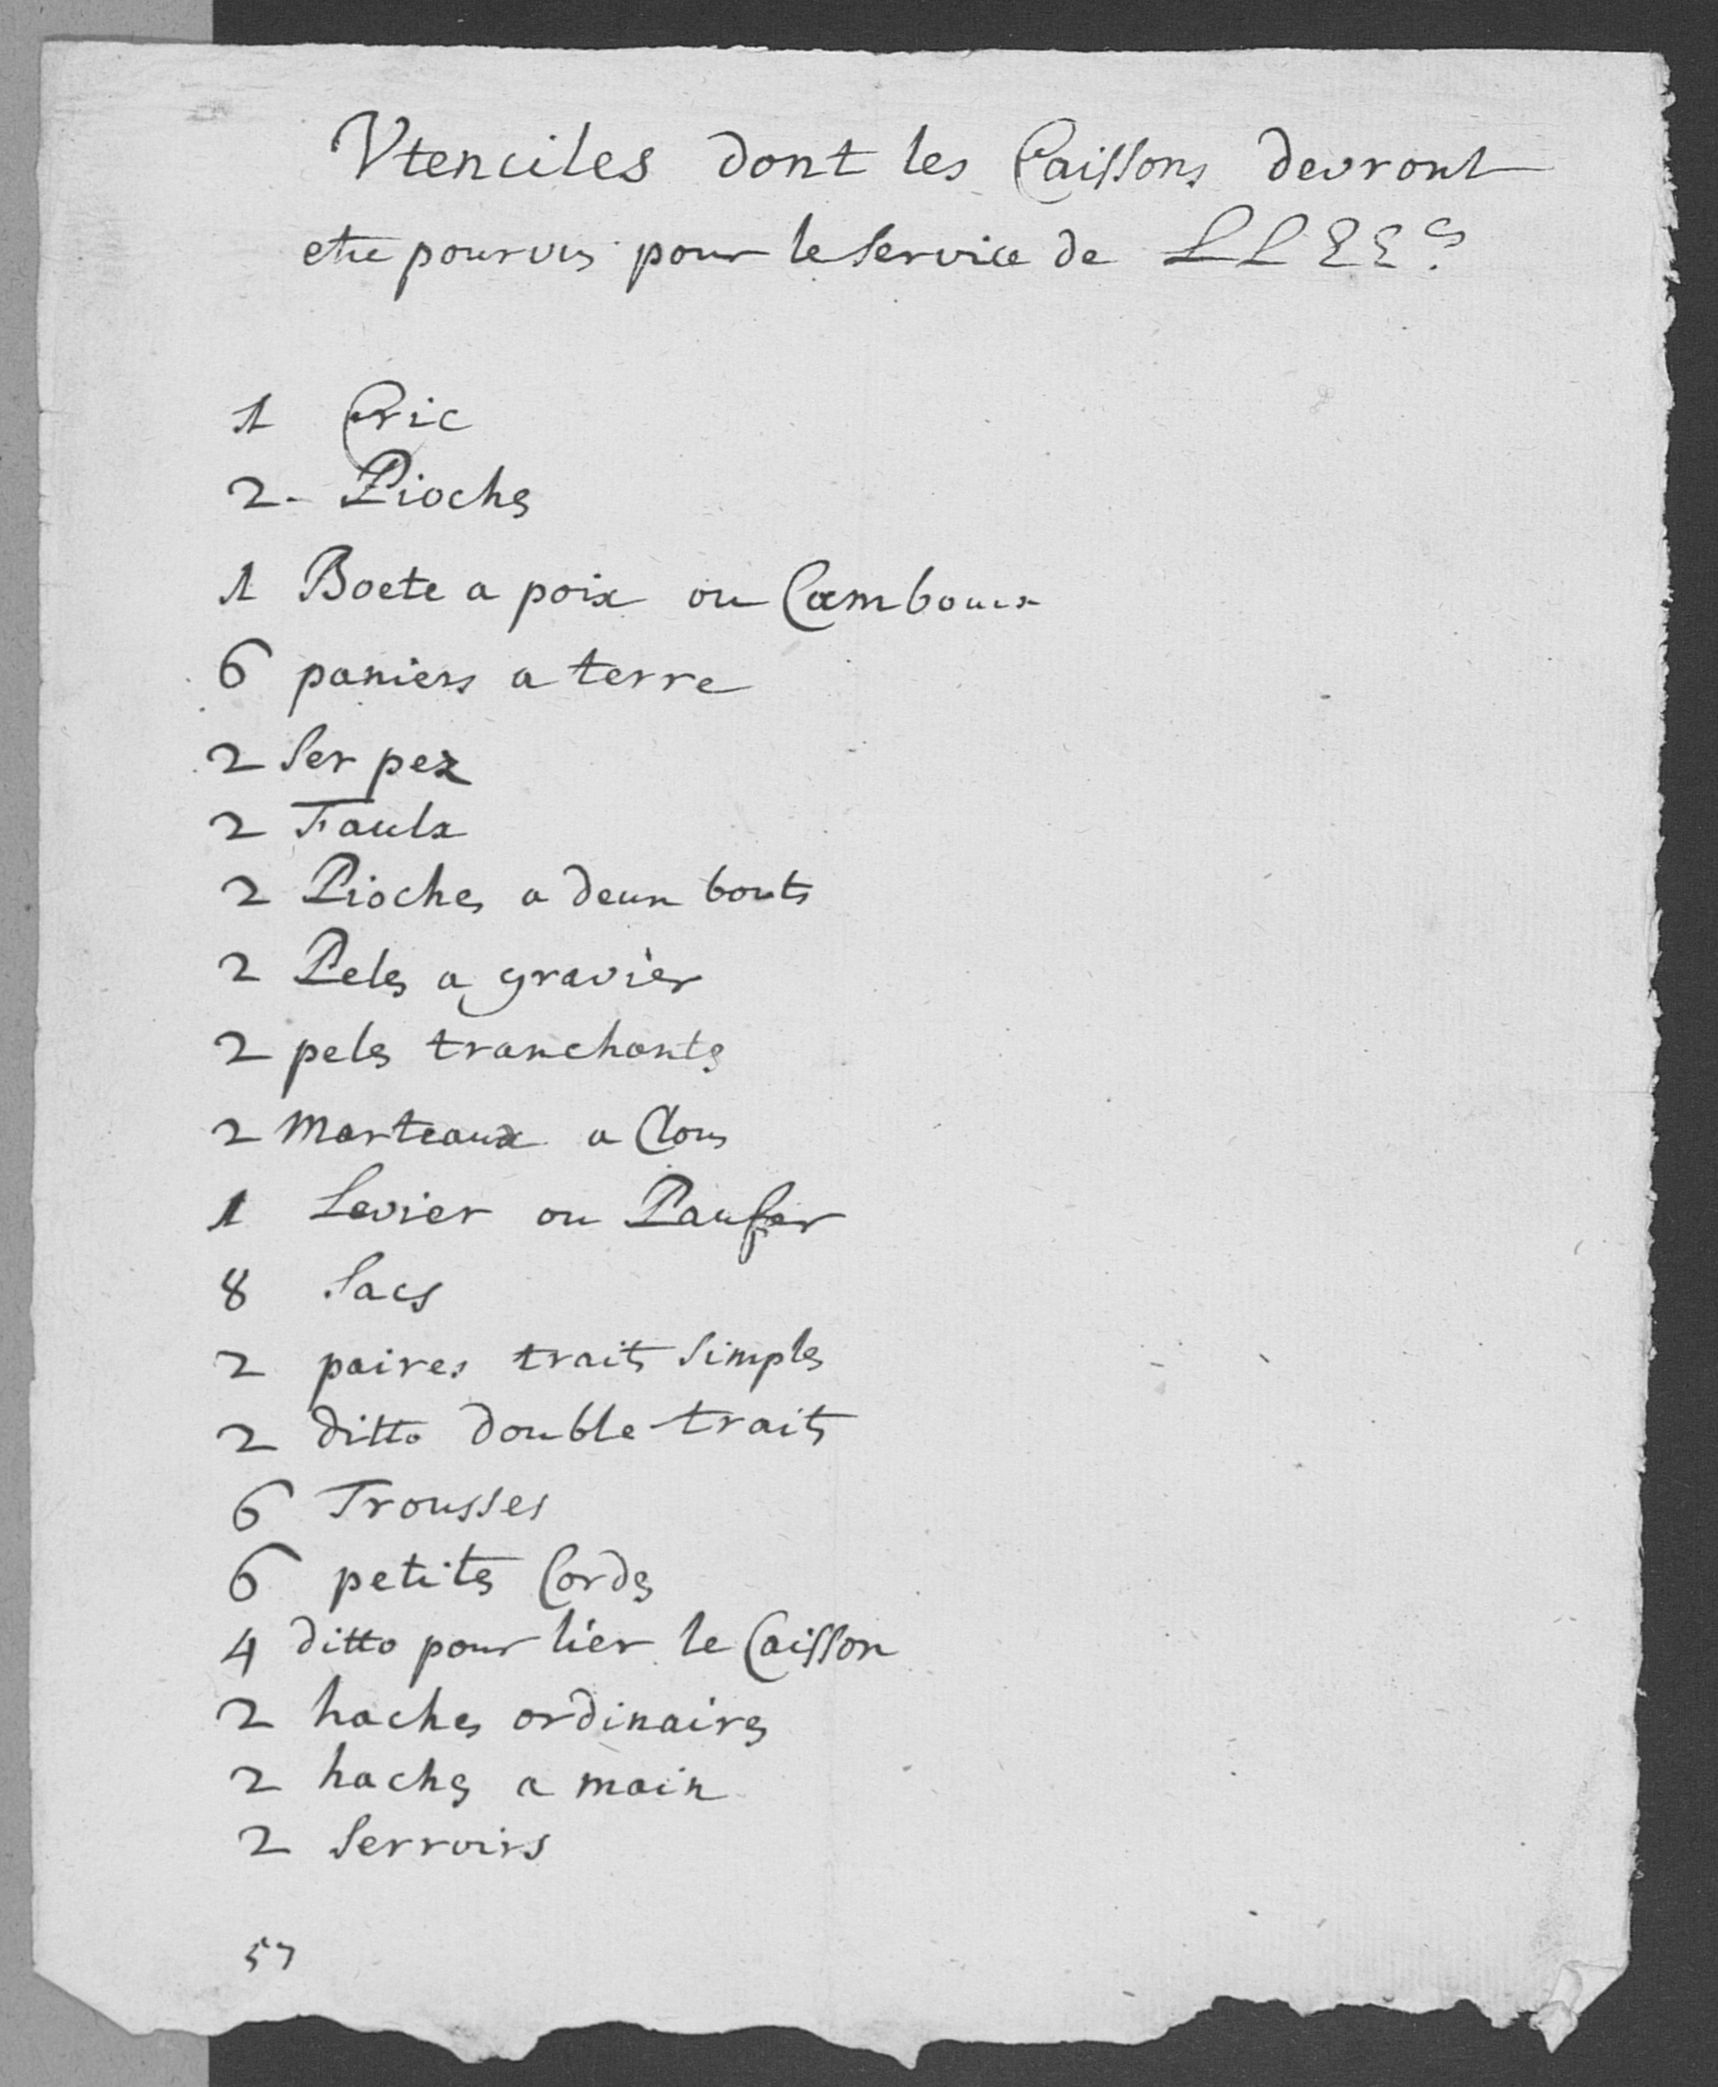 Vtenciles dont les Caissons devront
etre pourvus pour le Service de LLEEˢ
1 Cric
2 - Pioches
1 Boete a poix ou Cambouix
6 paniers a terre
2 Serpez
2 Faulx
2 Pioches a deux bouts
2 Peles a gravier
2 peles tranchantes
2 Marteaux a Clous
1 Levier ou Paufer
8 Sacs
2 paires traits Simples
2 ditto double traits
6 Trousses
6 petites Cordes
4 ditto pour lier le Caisson
2 haches ordinaires
2 haches a main
2 Serroirs
57